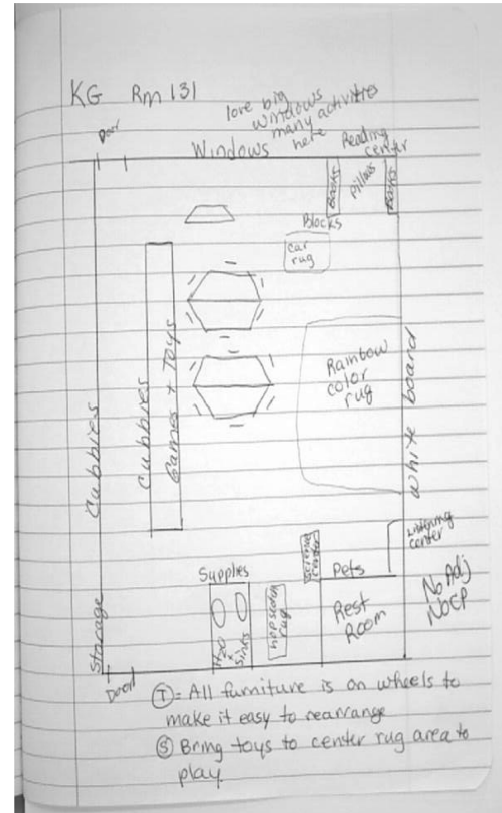 KG Rm 131
love big
windows
many activities
here
Door
Windows
Reading
center
Books
Pillows
Books
Blocks
car
rug
Cubbies
Cubbies
Games + Toys
Rainbow
color
rug
White board
Listening
center
Science center
Pets
Supplies
H2O
Sinks
hopscotch
rug
Rest
Room
No Adj
No EP
Storage
Door
T = All furniture is on wheels to
make it easy to rearrange
S Bring toys to center rug area to
play.